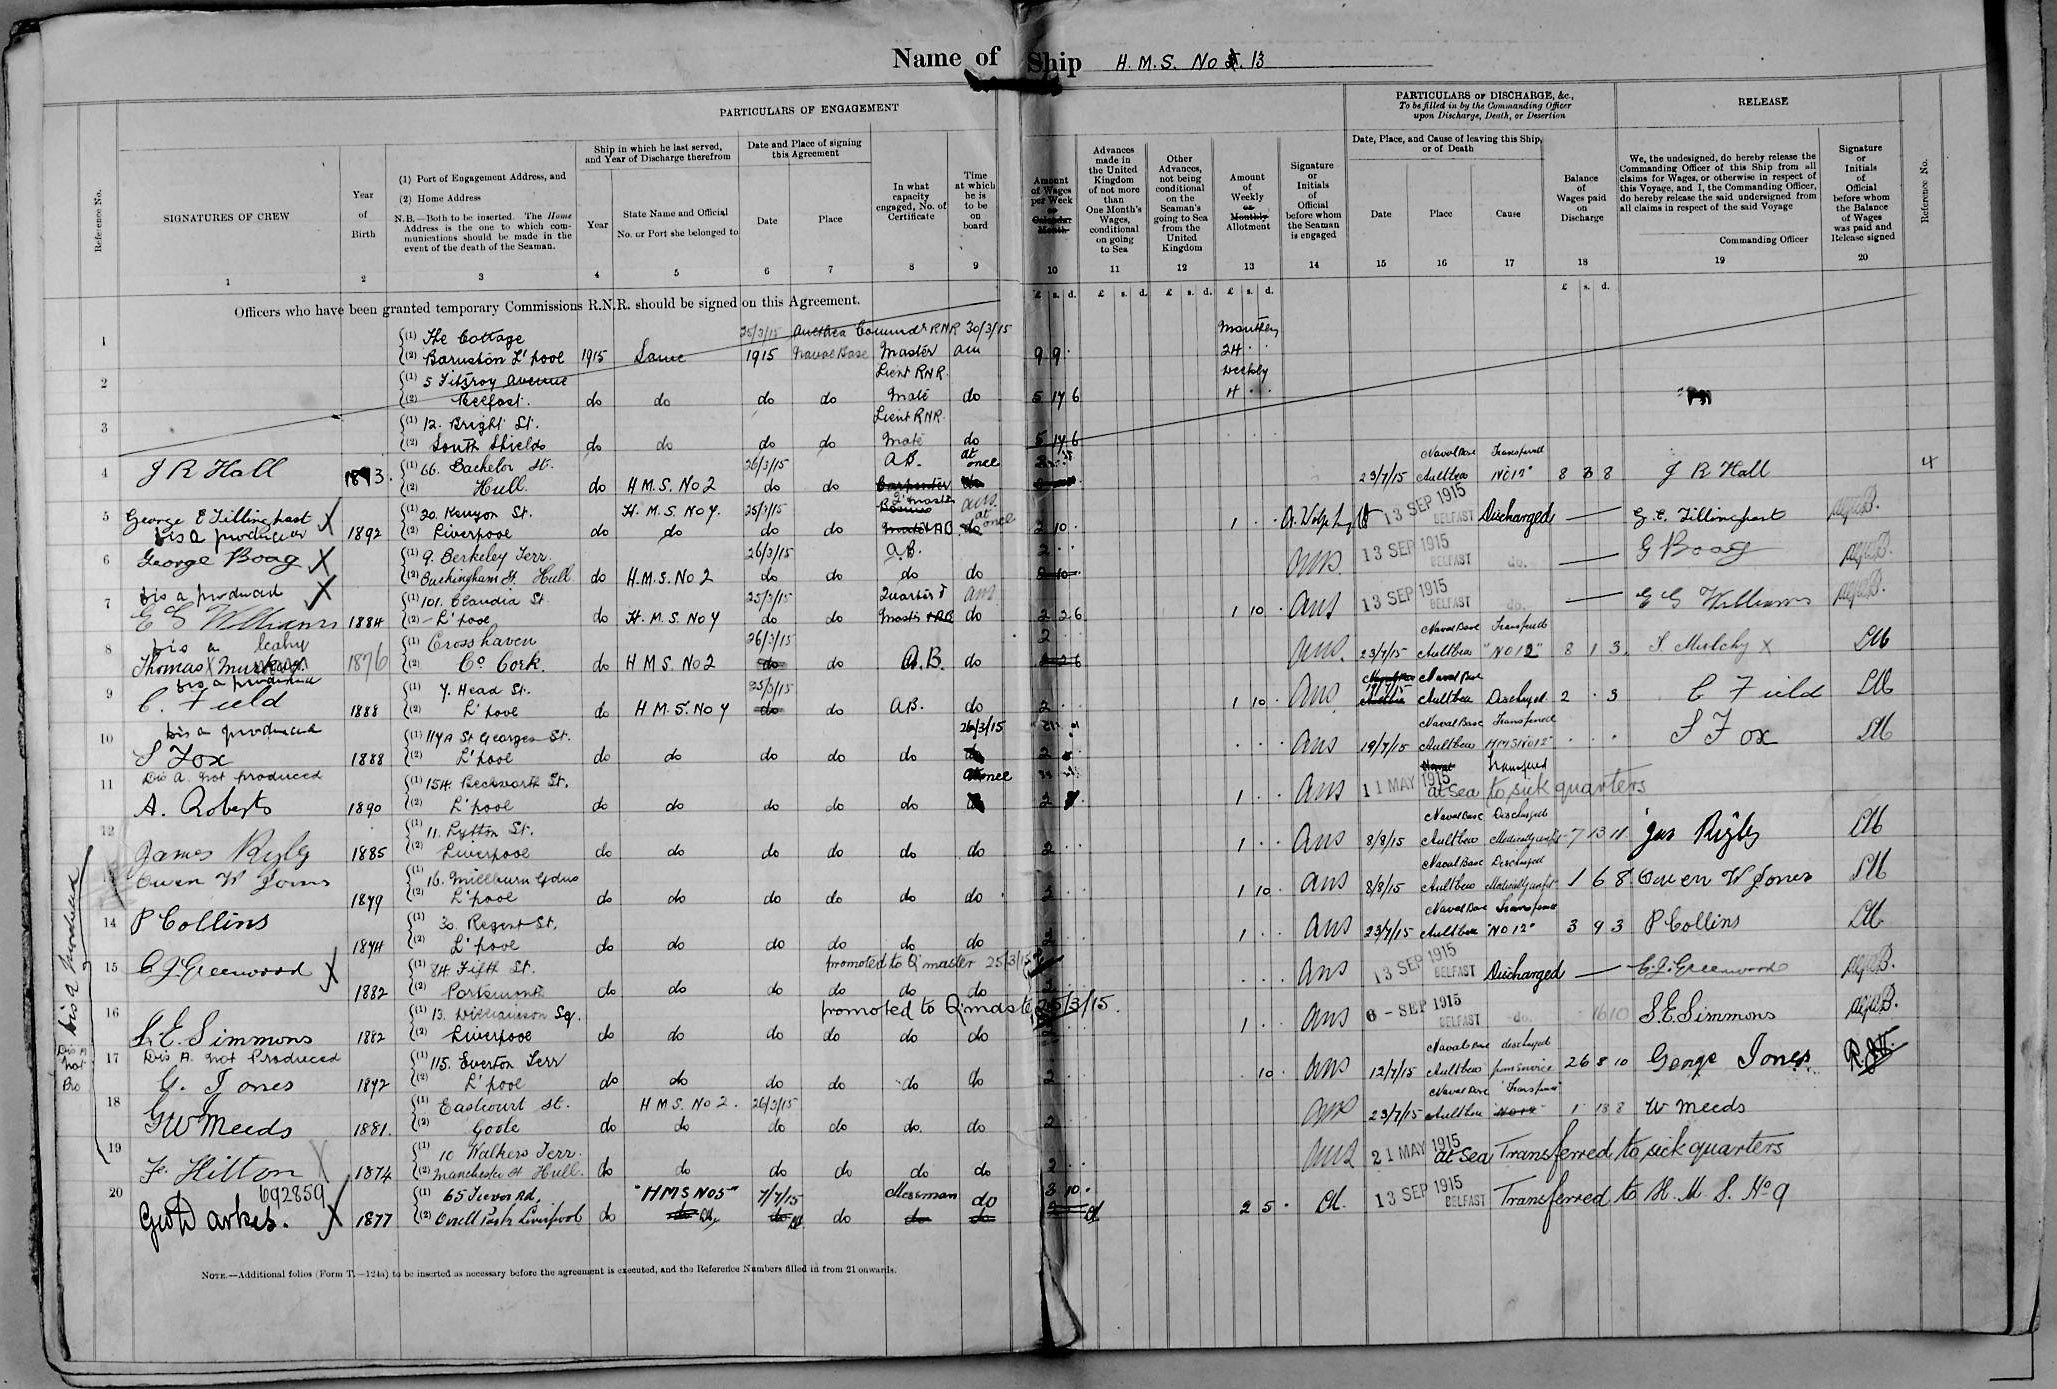 Name of Ship H.M.S. No 13
PARTICULARS OF ENGAGEMENT
PARTICULARS OF DISCHARGE, &c.,
To be filled in by the Commanding Officer
upon Discharge, Death, or Desertion
RELEASE
Reference No.
SIGNATURES OF CREW
Year
of
Birth
(1) Port of Engagement Address, and
(2) Home Address
N.B.—Both to be inserted. The Home
Address is the one to which com-
munications should be made in the
event of the death of the Seaman.
Ship in which he last served,
and Year of Discharge therefrom
Year
State Name and Official
No. or Port she belonged to
Date and Place of signing
this Agreement
Date
Place
In what
capacity
engaged, No. of
Certificate
Time
at which
he is
to be
on
board
Amount
of Wages
per Week
or
Calendar
Month
Advances
made in
the United
Kingdom
of not more
than
One Month's
Wages,
conditional
on going
to Sea
Other
Advances,
not being
conditional
on the
Seaman's
going to Sea
from the
United
Kingdom
Amount
of
Weekly
or
Monthly
Allotment
Signature
or
Initials
of
Official
before whom
the Seaman
is engaged
Date, Place, and Cause of leaving this Ship,
or of Death
Date
Place
Cause
Balance
of
Wages paid
on
Discharge
We, the undesigned, do hereby release the
Commanding Officer of this Ship from all
claims for Wages, or otherwise in respect of
this Voyage, and I, the Commanding Officer,
do hereby release the said undersigned from
all claims in respect of the said Voyage
Commanding Officer
Signature
or
Initials
of
Official
before whom
the Balance
of Wages
was paid and
Release signed
Reference No.
1 2 3 4 5 6 7 8 9 10 11 12 13 14 15 16 17 18 19 20
£ s. d. £ s. d. £ s. d. £ s. d. £ s. d.
Officers who have been granted temporary Commissions R.N.R. should be signed on this Agreement.
1 (1) The Cottage 25/3/15 Aultbea Commdr RNR 30/3/15 Monthly
(2) Barnston L'pool 1915 Same 1915 Naval Base Master am 9 9 24
2 (1) 5 Fitzroy Avenue Lieut RNR Weekly
(2) Belfast. do do do do Mate do 5 17 6 4
3 (1) 12. Bright St. Lieut RNR
(2) South Shields do do do do Mate do 5 17 6
4 J R Hall 1893. (1) 66. Bachelor St. 26/3/15 A.B. at once Naval Base Transferred
(2) Hull. do H.M.S. No 2 do do Carpenter 23/7/15 Aultbea No 12" 8 3 8 J R Hall 4
5 George E Tillinghast X (1) 20. Kenyon St. H.M.S. No 4. 25/3/15 at once 13 SEP 1915
Dis A produced 1892 (2) Liverpool do do do do do 2 10 1 BELFAST Discharged G. E. Tillinghast
6 George Boag X (1) 9. Berkeley Terr. 26/3/15 A.B. 2 13 SEP 1915
(2) Buckingham St. Hull do H.M.S. No 2 do do do do BELFAST do. G Boag
7 Dis A produced X (1) 101. Claudia St. 25/3/15 13 SEP 1915
E G Williams 1884 (2) L'pool do H.M.S. No 4 do do do 2 2 6 1 10 BELFAST do. E G Williams
8 Dis A Leahy (1) Crosshaven 26/3/15 2 Naval Base Transferred
Thomas X 1876 (2) Co Cork. do H M S. No 2 do do A.B. do 23/7/15 Aultbea "No 12" 8 1 3
9 Dis A produced (1) 7. Head St. 25/3/15 Naval Base
C. Field 1888 (2) L'pool do H M S. No 4 do do A.B. do 2 1 10 Aultbea Discharged 2 3 C Field
10 Dis A produced (1) 114A St Georges St. 26/3/15 Naval Base Transferred
S Fox 1888 (2) L'pool do do do do do 2 19/7/15 Aultbea HMS No 12" S Fox
11 Dis A. not produced (1) 154. Beckworth St. At once Transferred
A. Roberts 1890 (2) L'pool do do do do do 2 1 11 MAY 1915 at Sea to sick quarters
12 (1) 11. Lytton St. Naval Base Discharged
James Rigby 1885 (2) Liverpool do do do do do do 2 1 8/8/15 Aultbea Medically unfit 7 13 11 Jas Rigby
(1) 16. Millburn Gdns Naval Base Discharged
Owen W Jones 1879 (2) L'pool do do do do do do 2 1 10 8/8/15 Aultbea Medically unfit 1 6 8 Owen W Jones
14 P Collins (1) 30. Regent St. Naval Base Transferred
1874 (2) L'pool do do do do do do 2 1 23/7/15 Aultbea "No 12" 3 9 3 P Collins
15 C. J. Greenwood X (1) 84. Fifth St. promoted to Q'master 25/3/15 13 SEP 1915
1882 (2) Portsmouth do do do do do do BELFAST Discharged C. J. Greenwood
16 (1) 13. Williamson Sq. promoted to Q'master 25/3/15. 6 - SEP 1915
S. E. Simmons 1882 (2) Liverpool do do do do do do 1 BELFAST do. 16 10 S. E. Simmons
17 Dis A. not Produced (1) 115. Everton Terr Naval Base discharged
G. Jones 1892 (2) L'pool do do do do do do 2 10 12/7/15 Aultbea from service 26 8 10 George Jones
18 (1) Eastcourt St. H M S. No 2. 26/3/15 Naval Base Transferred
G W Meeds 1881. (2) Goole do do do do do. do 2 23/7/15 Aultbea No 12 1 13 8 W Meeds
19 (1) 10 Walkers Terr. 21 MAY 1915
F. Hilton X 1874 (2) Manchester St Hull. do do do do do do 2 at Sea Transferred to sick quarters
20 692859 (1) 65 Trevor Rd, "HMS No 5" 7/7/15 Messman do 3 10 13 SEP 1915
Geo Darkes. X 1877 (2) Orrell Park Liverpool do do do do do do 2 5 BELFAST Transferred to H. M. S. No 9
Dis A
not
Pro
Note.—Additional folios (Form T.—124a) to be inserted as necessary before the agreement is executed, and the Reference Numbers filled in from 21 onwards.